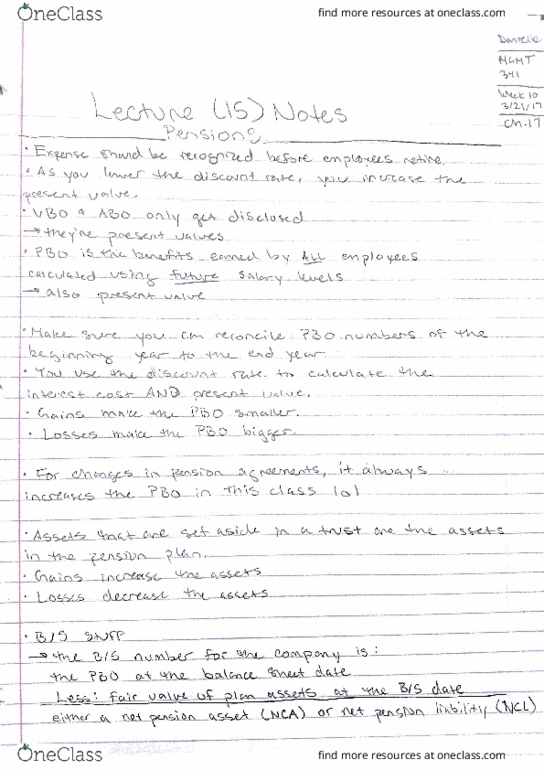 OneClass
find more resources at oneclass.com
Danielle
MGMT
341
Week 10
3/21/17
Ch.17
Lecture (15) Notes
Pensions
• Expense should be recognized before employees retire.
• As you lower the discount rate, you increase the
present value.
• VBO & ABO only get disclosed
→ they're present values
• PBO is the benefits earned by ALL employees
calculated using future salary levels
→ also present value
• Make sure you can reconcile PBO numbers of the
beginning year to the end year
• You use the discount rate to calculate the
interest cost AND present value.
• Gains make the PBO smaller.
• Losses make the PBO bigger.
• For changes in pension agreements, it always
increases the PBO in this class lol
• Assets that are set aside in a trust are the assets
in the pension plan.
• Gains increase the assets
• Losses decrease the assets
• B/S STUFF
→ the B/S number for the company is:
the PBO at the balance sheet date
Less: fair value of plan assets at the B/S date
either a net pension asset (NCA) or net pension liability (NCL)
OneClass
find more resources at oneclass.com